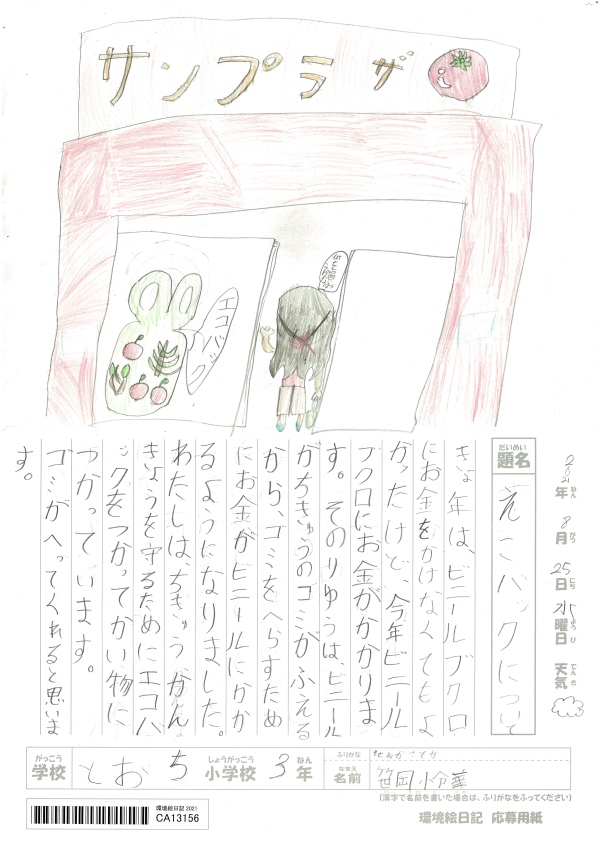 サンプラザ
エコバック
2021年 8月 25日 水曜日 天気
ねん がつ にち ようび てんき
だいめい
題名
えこバックについて
きょ年は、ビニールブクロ
にお金をかけなくてもよ
かったけど、今年ビニール
ブクロにお金がかかりま
す。そのりゆうは、ビニール
がちきゅうのゴミがふえる
から、ゴミをへらすため
にお金がビニールにかか
るようになりました。
わたしは、ちきゅうかん
きょうを守るためにエコバ
ックをつかってかい物に
つかっています。
ゴミがへってくれると思いま
す。
がっこう
学校
とおち
しょうがっこう
小学校
3
ねん
年
ふりがな
なまえ
名前
笹岡 小令華
(漢字で名前を書いた場合は、ふりがなをふってください)
環境絵日記2021
CA13156
環境絵日記 応募用紙